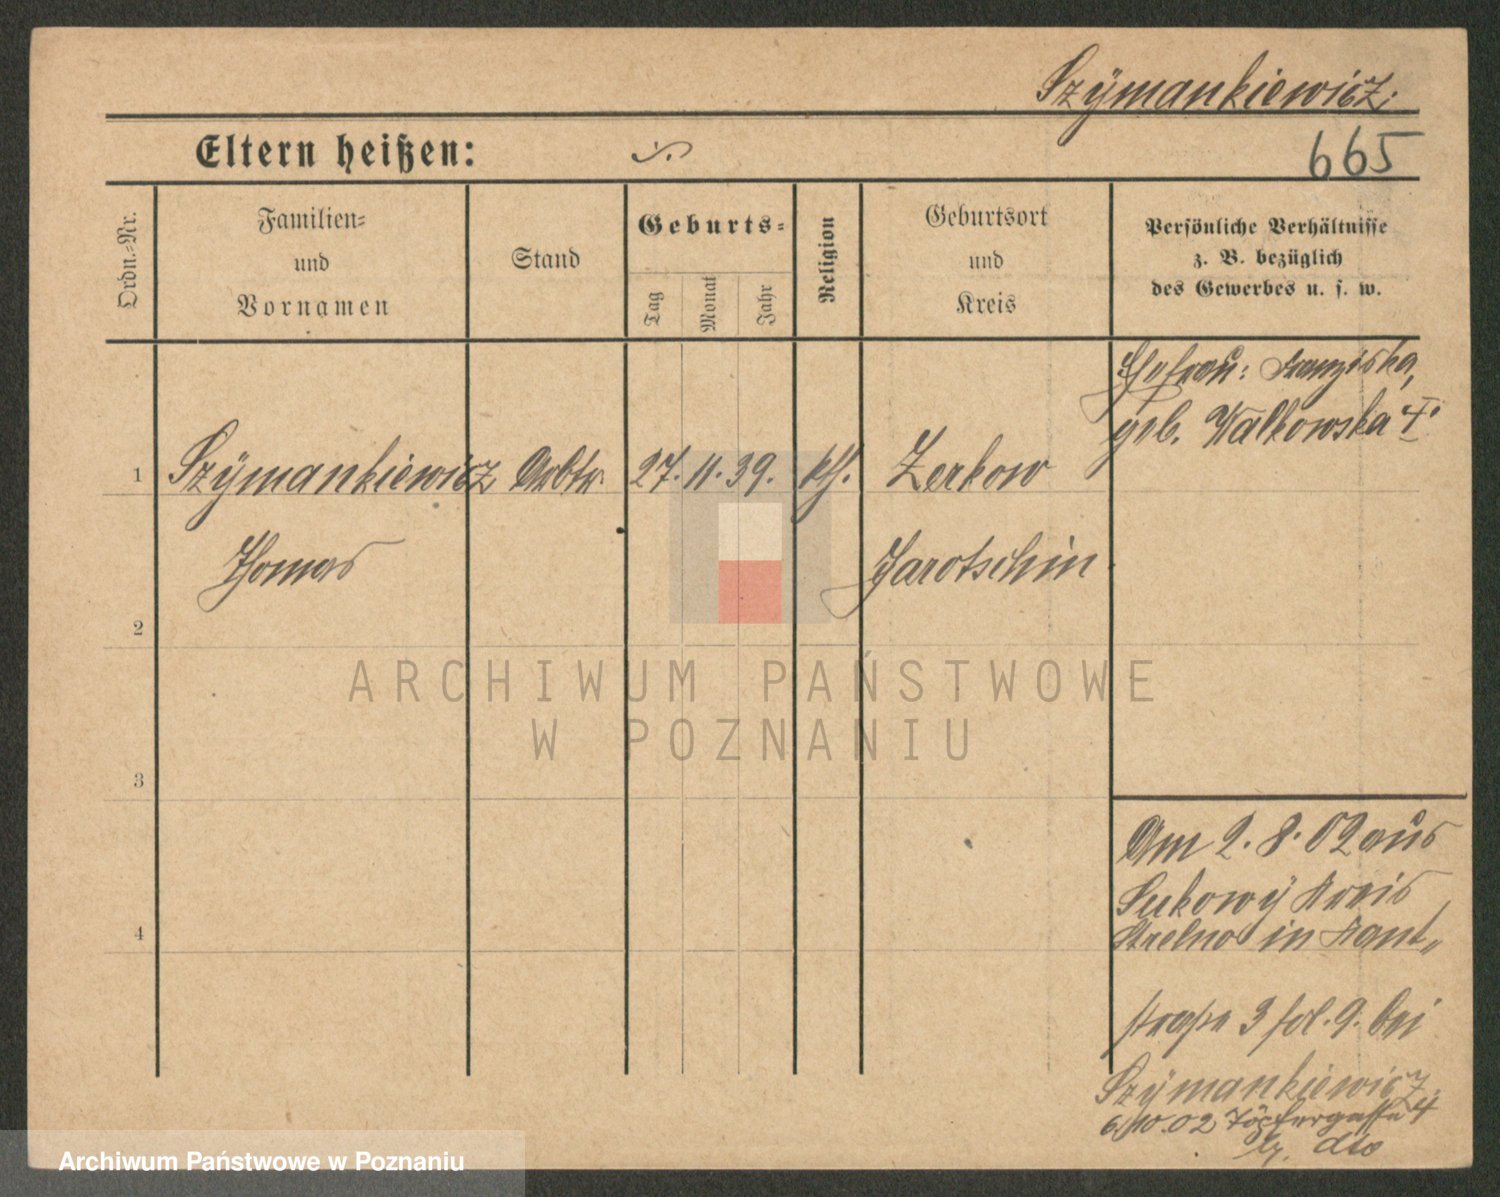 Szÿmankiewicz.
Eltern heißen:
665
Ordn.-Nr.
Familien-
und
Vornamen
Stand
Geburts-
Tag
Monat
Jahr
Religion
Geburtsort
und
Kreis
Persönliche Verhältnisse
z. B. bezüglich
des Gewerbes u. s. w.
Ehefrau: Franziska,
geb. Walkowska †.
1 Szÿmankiewicz Arbtr. 27. 11. 39. kth. Zerkow
Thomas Jarotschin
2
3
4
Am 2. 8. 02 aus
Sukowÿ Kreis
Strelno in Kant„
straße 3 fol. 9. bei
Szÿmankiewicz.
6.10.02 Töpfergasse 4
dto
ARCHIWUM PAŃSTWOWE
W POZNANIU
Archiwum Państwowe w Poznaniu